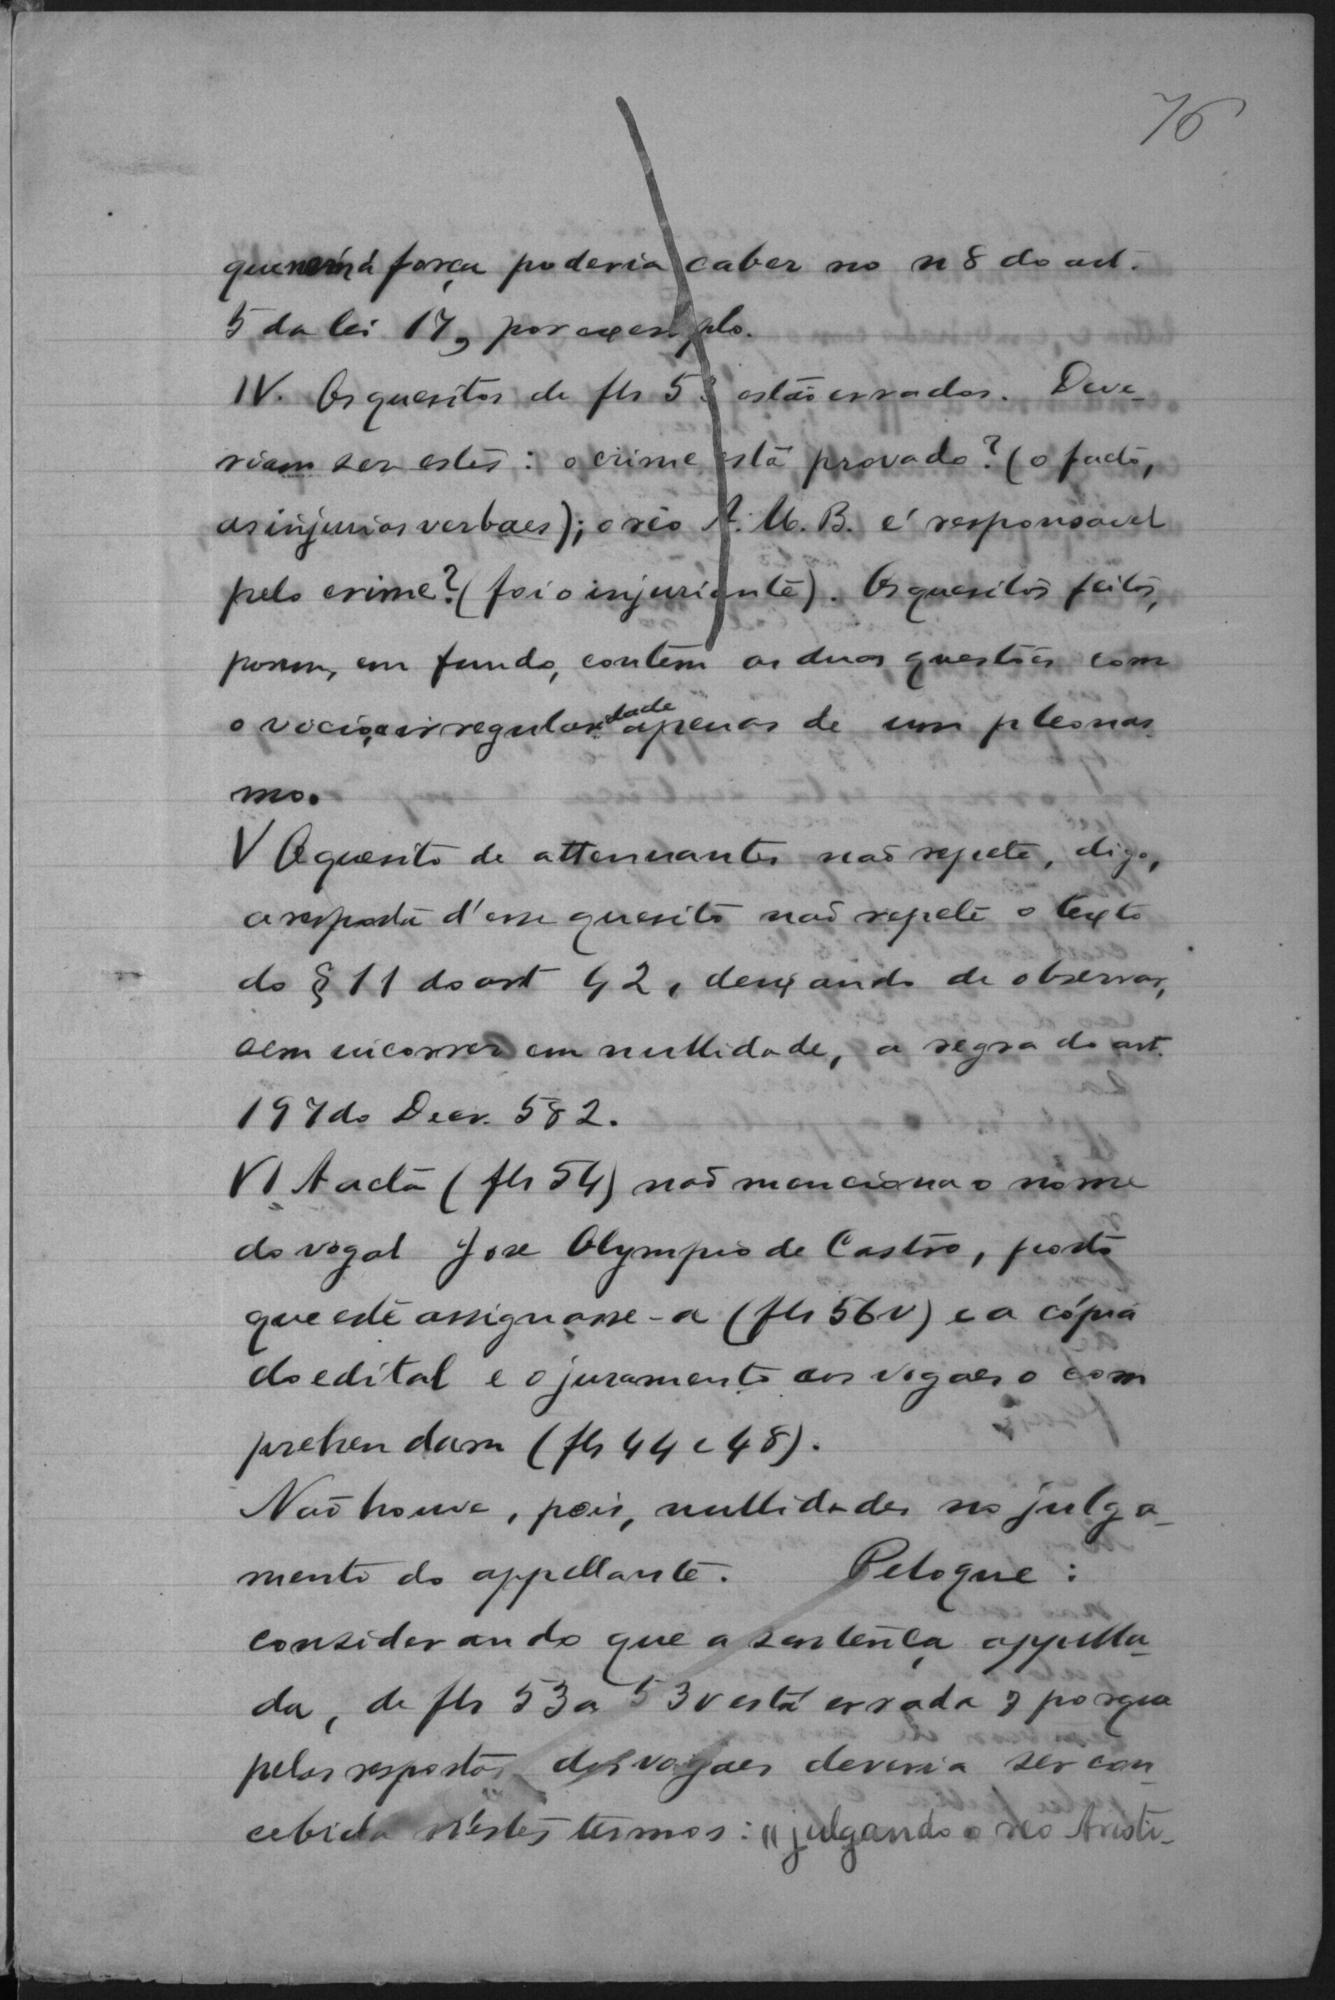 76
que nem á força poderia caber no n 8 do art.
5 da lei 17, por exemplo.
IV. Os quesitos de fls 53 estão errados. Deve-
riam ser estes: o crime está provado? (o facto,
as injurias verbaes); o réo A. M. B. é responsavel
pelo crime? (foi o injuriante). Os quesitos feitos,
porem, em fundo, contêm as duas questões com
o vicio, a irregularidade apenas de um pleonas
mo.
V O quesito de attenuantes não repete, digo,
a resposta d'esse quesito não repete o texto
do § 11 do art 42, deixando de observar,
sem incorrer em nullidade, a regra do art.
197 do Decr. 582.
VI A acta (fls 54) não menciona o nome
do vogal Jose Olympio de Castro, posto
que este assignasse-a (fls 56v) e a cópia
do edital e o juramento aos vogaes o com
prehendam (fls 44 e 48).
Não houve, pois, nullidades no julga-
mento do appellante. Pelo que:
considerando que a sentença appella-
da, de fls 53 a 53v está errada, porque
pelas respostas dos vogaes deveria ser con
cebida n'estes termos: "julgando o réo Aristi-